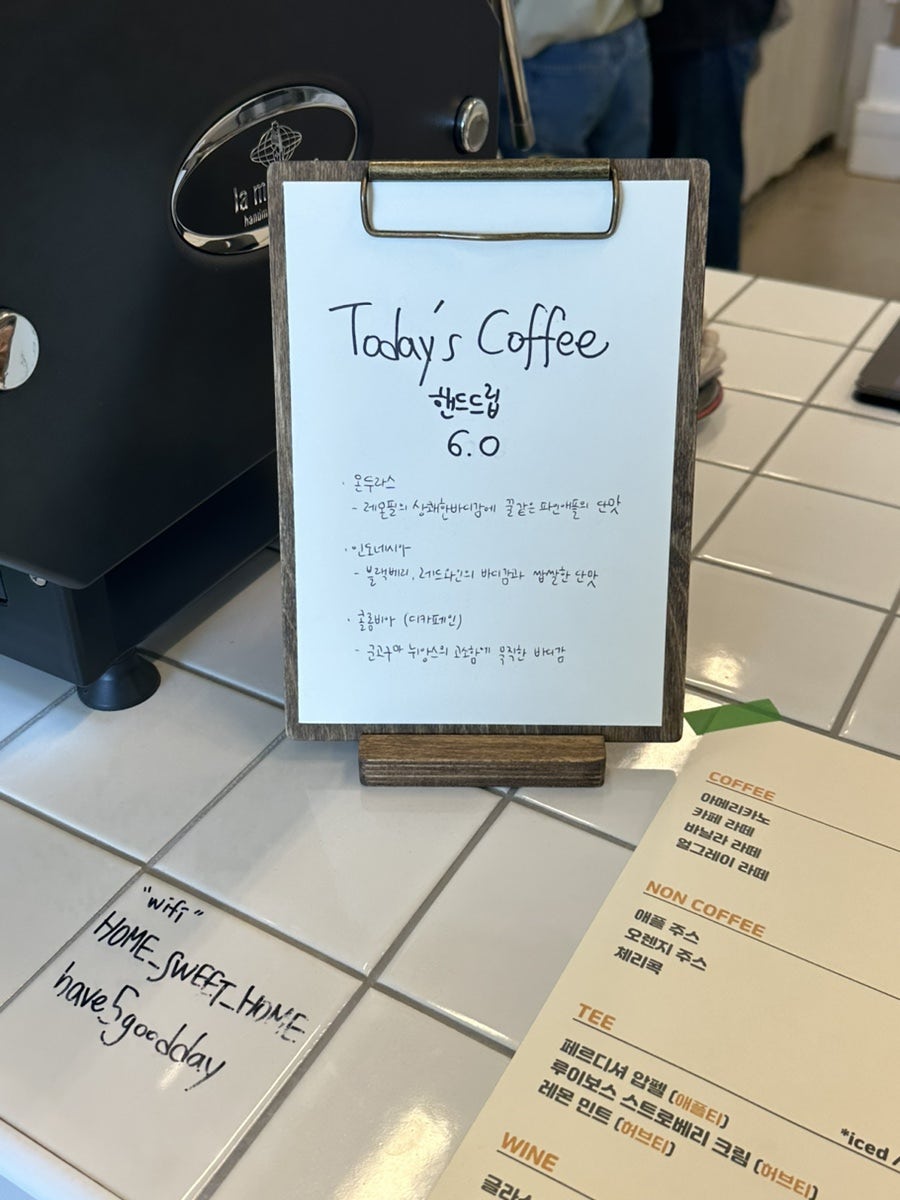 la m
Today's Coffee
핸드드립
6.0
· 온두라스
- 레몬필의 상쾌한바디감에 꿀같은 파인애플의 단맛
· 인도네시아
- 블랙베리, 레드와인의 바디감과 쌉쌀한 단맛
· 콜롬비아 (디카페인)
- 군고구마 뉘앙스의 고소함과 묵직한 바디감
"wifi"
HOME_SWEET_HOME
have_5goodday
COFFEE
아메리카노
카페 라떼
바닐라 라떼
얼그레이 라떼
NON COFFEE
애플 주스
오렌지 주스
체리콕
TEE
페르디셔 압펠 (애플티)
루이보스 스트로베리 크림 (허브티)
레몬 민트 (허브티)
*iced
WINE
글라스